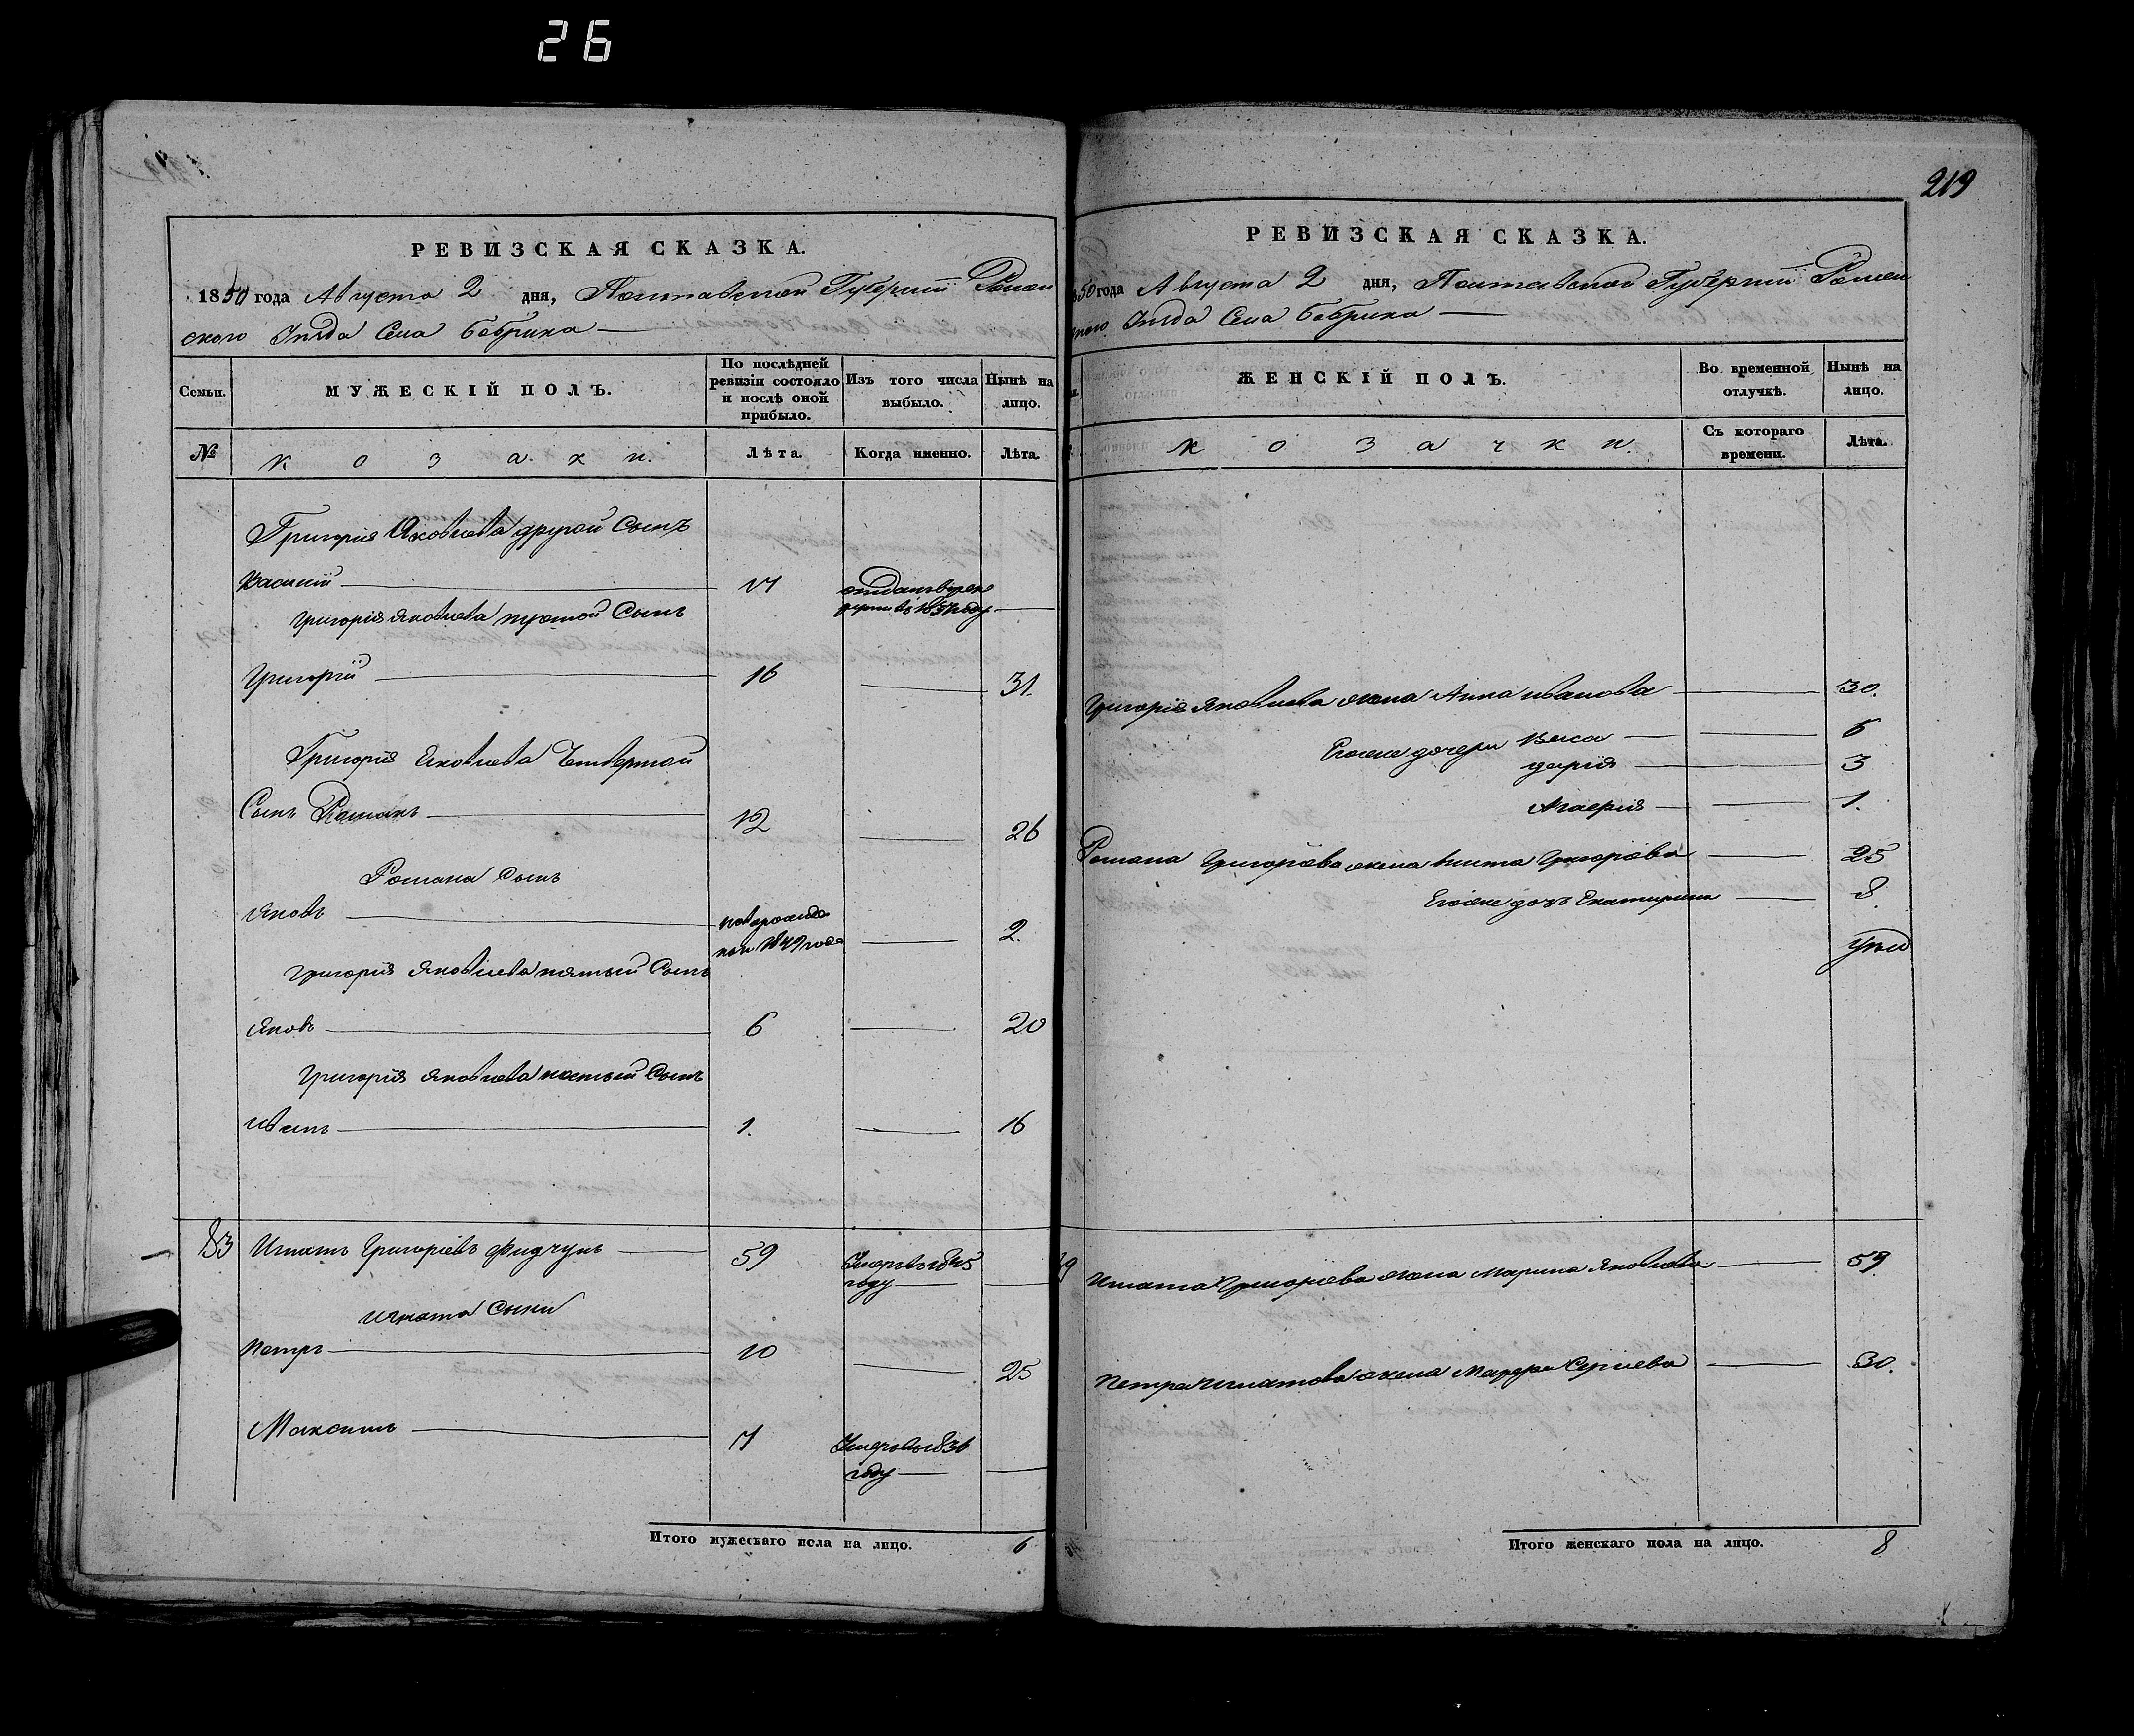 26
219
РЕВИЗСКАЯ СКАЗКА.
1850 года Августа 2 дня, Полтавской Губернiи Ромен
ского Уѣзда Села Бобрика
Семьи.
МУЖЕСКIЙ ПОЛЪ.
По послѣдней ревизiи состояло и послѣ оной прибыло.
Изъ того числа выбыло.
Нынѣ на лицо.
№
козаки.
Лѣта.
Когда именно.
Лѣта.
Григорiя Яковлева другой Сынъ
Василiй 17 отданъ въ рек
руты въ 1837 году
Григорiя Яковлева третой Сынъ
Григорiй 16 31.
Григорiя Яковлева Четвертой
Сынъ Романъ 12 26
Романа Сынъ
Яковъ новорожде
ный 1849 года 2.
Григорiя Яковлева пятый Сынъ
Яковъ 6 20
Григорiя Яковлева шостый Сынъ
Иванъ 1. 16
83 Игнатъ Григорiевъ 59 Умеръ въ 1845
году
Игната Сыны
Петръ 10 25
Максимъ 7 Умеръ въ 1836
году
Итого мужескаго пола на лицо. 6
РЕВИЗСКАЯ СКАЗКА.
50 года Августа 2 дня, Полтавской Губернiи Ромен
ского Уѣзда Села Бобрика
ЖЕНСКIЙ ПОЛЪ.
Во временной отлучкѣ.
Нынѣ на лицо.
козачки.
Съ котораго времени.
Лѣта.
Григорiя Яковлева жена Анна Иванова 30.
Его же дочери 6
Дарiя 3
1.
Романа Григорiева жена Григорiева 25
Его же дочь Екатирина 8
Игната Григорiева жена Марина Яковлева 59.
Петра Игнатова жена Марфа Сергiева 30.
Итого женскаго пола на лицо. 8